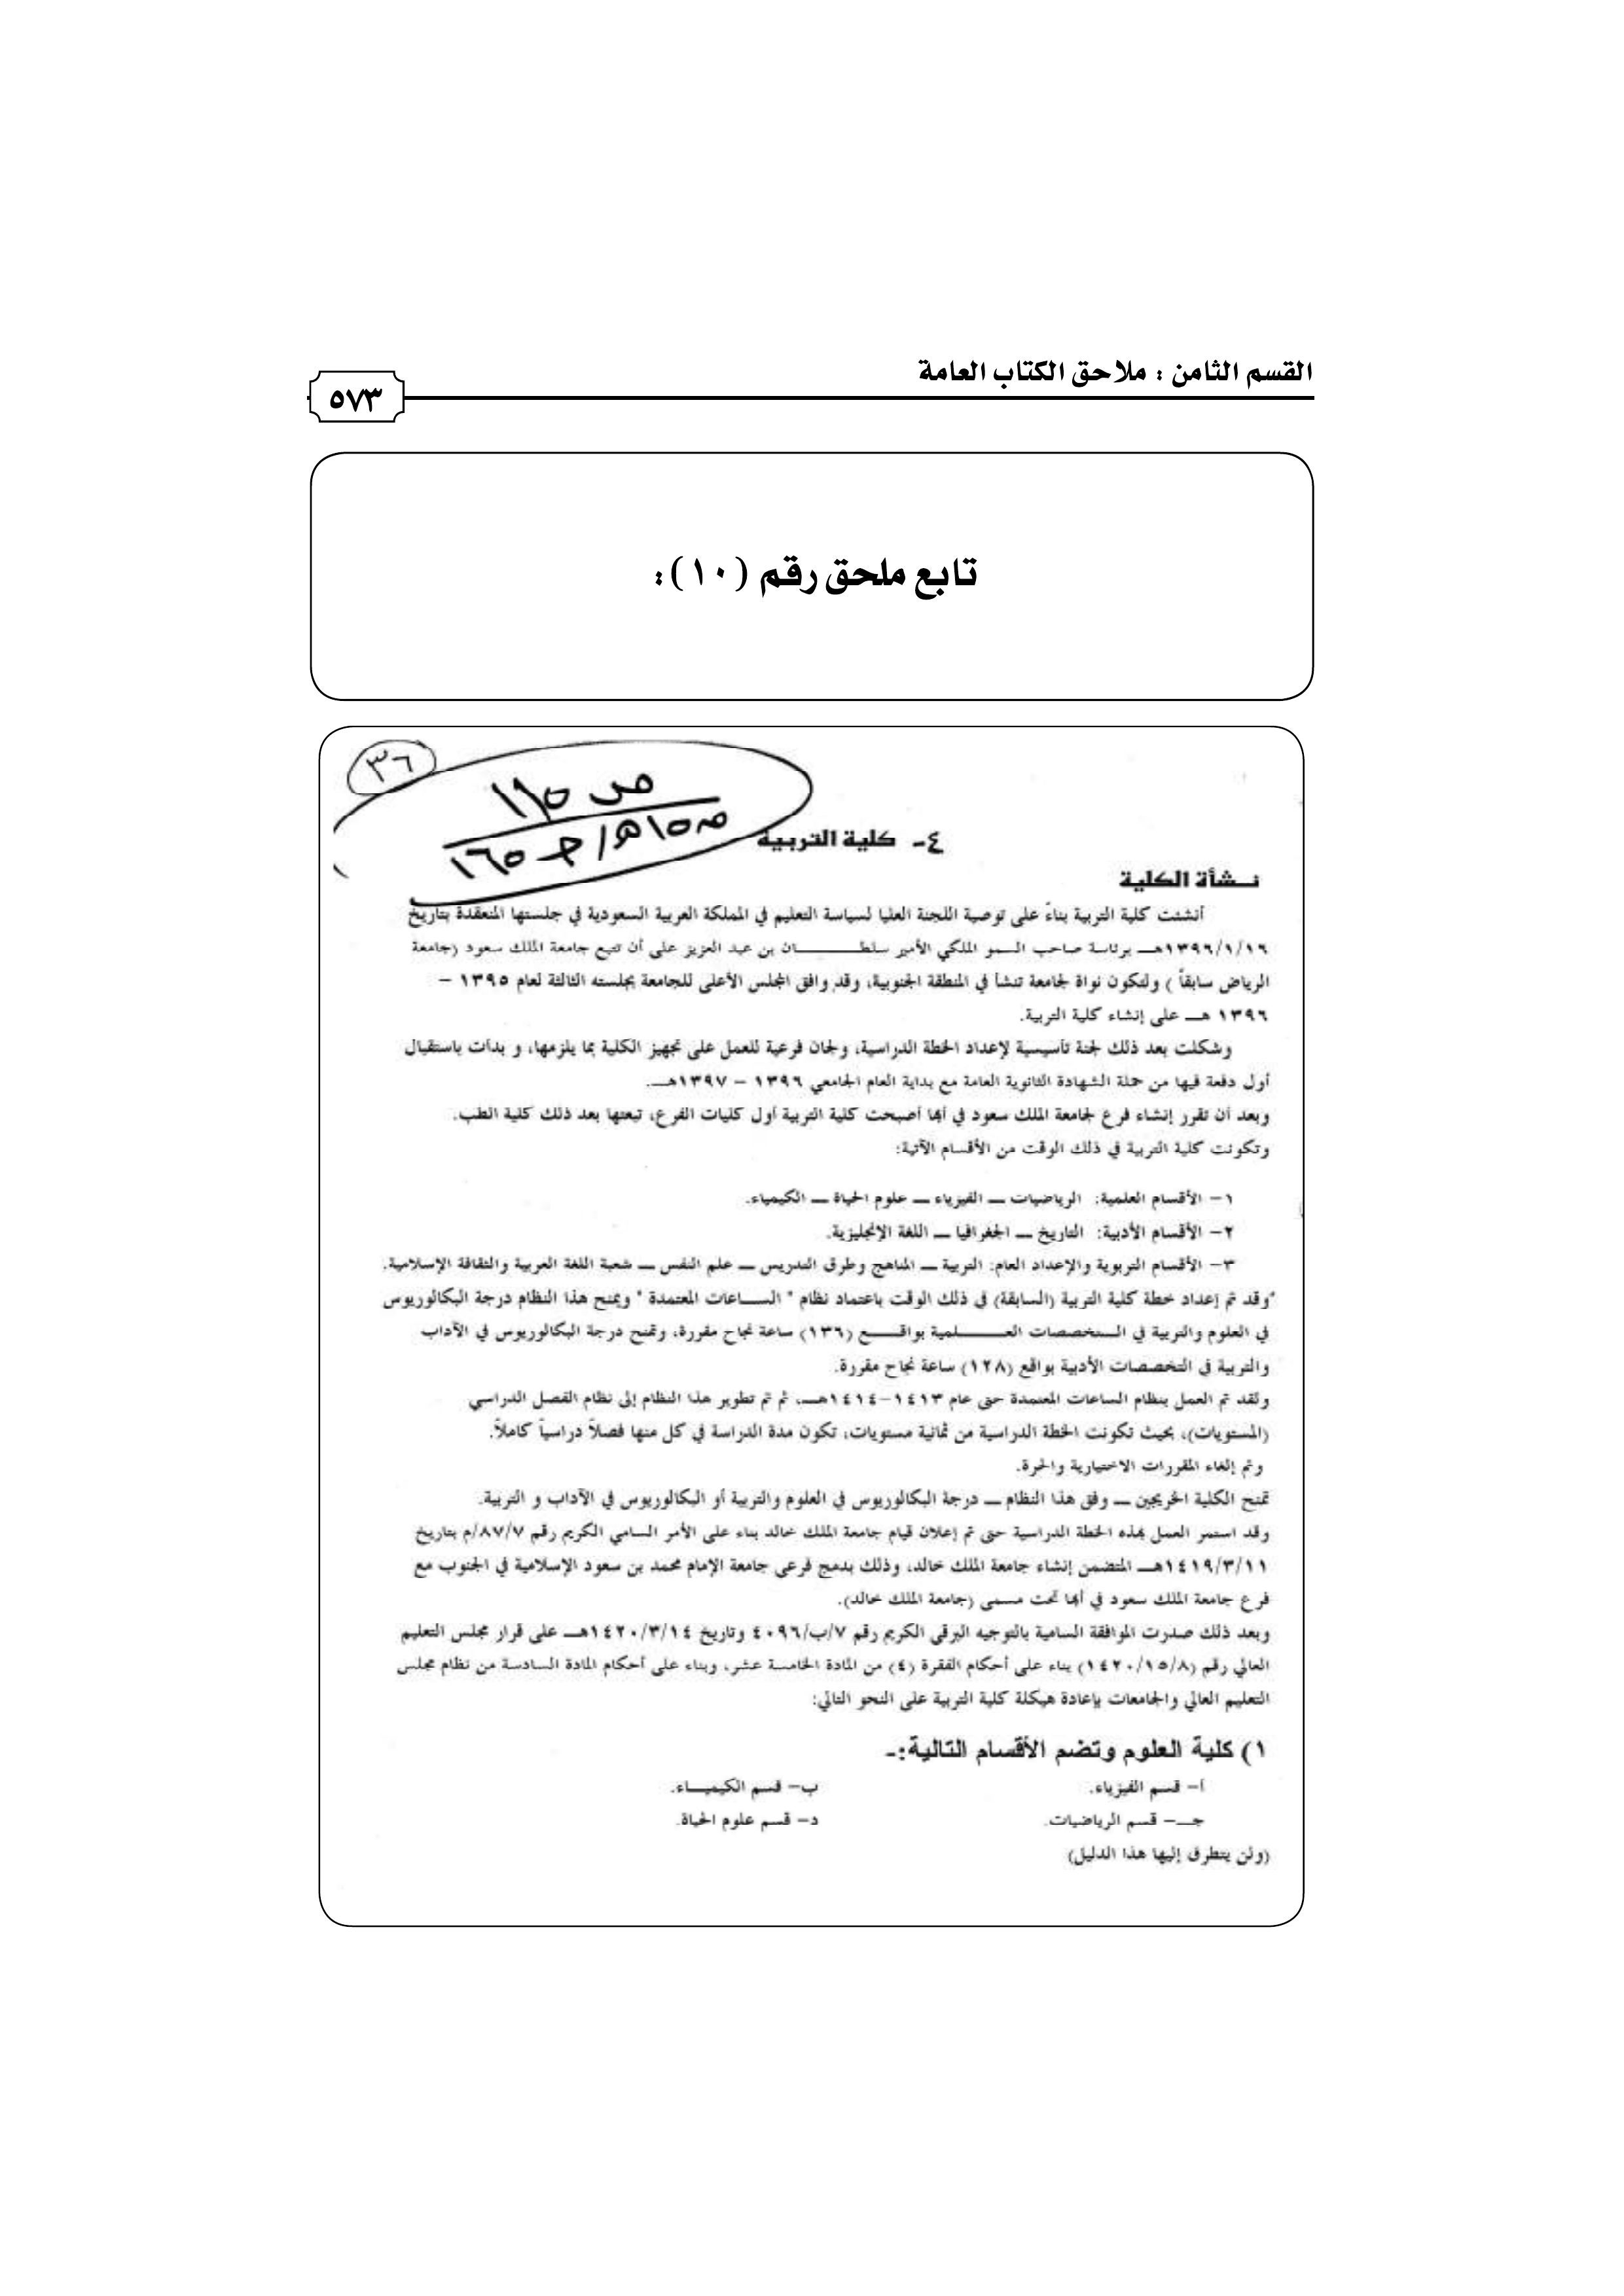 القسم الثامن : ملاحق الكتاب العامة
٥٧٣
تابع ملحق رقم (١٠):
٣٦
ص
٤- كلية التربية
نــشأة الكلية
أنشئت كلية التربية بناءً على توصية اللجنة العليا لسياسة التعليم في المملكة العربية السعودية في جلستها المنعقدة بتاريخ
١٣٩٦/١/١٦هــ برئاسة صاحب السمو الملكي الأمير سلطــــــــان بن عبد العزيز على أن تتبع جامعة الملك سعود (جامعة
الرياض سابقاً ) ولتكون نواة لجامعة تنشأ في المنطقة الجنوبية، وقد وافق المجلس الأعلى للجامعة بجلسته الثالثة لعام ١٣٩٥ –
١٣٩٦ هــ على إنشاء كلية التربية.
وشكلت بعد ذلك لجنة تأسيسية لإعداد الخطة الدراسية، ولجان فرعية للعمل على تجهيز الكلية بما يلزمها، و بدأت باستقبال
أول دفعة فيها من حملة الشهادة الثانوية العامة مع بداية العام الجامعي ١٣٩٦ – ١٣٩٧هــ.
وبعد أن تقرر إنشاء فرع لجامعة الملك سعود في أبها أصبحت كلية التربية أول كليات الفرع، تبعتها بعد ذلك كلية الطب.
وتكونت كلية التربية في ذلك الوقت من الأقسام الآتية:
١– الأقسام العلمية: الرياضيات ــ الفيزياء ــ علوم الحياة ــ الكيمياء.
٢– الأقسام الأدبية: التاريخ ــ الجغرافيا ــ اللغة الإنجليزية.
٣– الأقسام التربوية والإعداد العام: التربية ــ المناهج وطرق التدريس ــ علم النفس ــ شعبة اللغة العربية والثقافة الإسلامية.
وقد تم إعداد خطة كلية التربية (السابقة) في ذلك الوقت باعتماد نظام " الســـاعات المعتمدة " ويمنح هذا النظام درجة البكالوريوس
في العلوم والتربية في الـتخصصات العــــــلمية بواقــــع (١٣٦) ساعة نجاح مقررة، وتمنح درجة البكالوريوس في الآداب
والتربية في التخصصات الأدبية بواقع (١٢٨) ساعة نجاح مقررة.
ولقد تم العمل بنظام الساعات المعتمدة حتى عام ١٤١٣–١٤١٤هــ، ثم تم تطوير هذا النظام إلى نظام الفصل الدراسي
(المستويات)، بحيث تكونت الخطة الدراسية من ثمانية مستويات، تكون مدة الدراسة في كل منها فصلاً دراسياً كاملاً.
وتم إلغاء المقررات الاختيارية والحرة.
تمنح الكلية الخريجين ــ وفق هذا النظام ــ درجة البكالوريوس في العلوم والتربية أو البكالوريوس في الآداب و التربية.
وقد استمر العمل بهذه الخطة الدراسية حتى تم إعلان قيام جامعة الملك خالد بناء على الأمر السامي الكريم رقم ٨٧/٧/م بتاريخ
١٤١٩/٣/١١هــ المتضمن إنشاء جامعة الملك خالد، وذلك بدمج فرعي جامعة الإمام محمد بن سعود الإسلامية في الجنوب مع
فرع جامعة الملك سعود في أبها تحت مسمى (جامعة الملك خالد).
وبعد ذلك صدرت الموافقة السامية بالتوجيه البرقي الكريم رقم ٧/ب/٤٠٩٦ وتاريخ ١٤٢٠/٣/١٤هــ على قرار مجلس التعليم
العالي رقم (١٤٢٠/١٥/٨) بناء على أحكام الفقرة (٤) من المادة الخامسة عشر، وبناء على أحكام المادة السادسة من نظام مجلس
التعليم العالي والجامعات بإعادة هيكلة كلية التربية على النحو التالي:
١) كلية العلوم وتضم الأقسام التالية:-
أ– قسم الفيزياء. ب– قسم الكيميـــاء.
جــ– قسم الرياضيات. د– قسم علوم الحياة.
(ولن يتطرق إليها هذا الدليل)